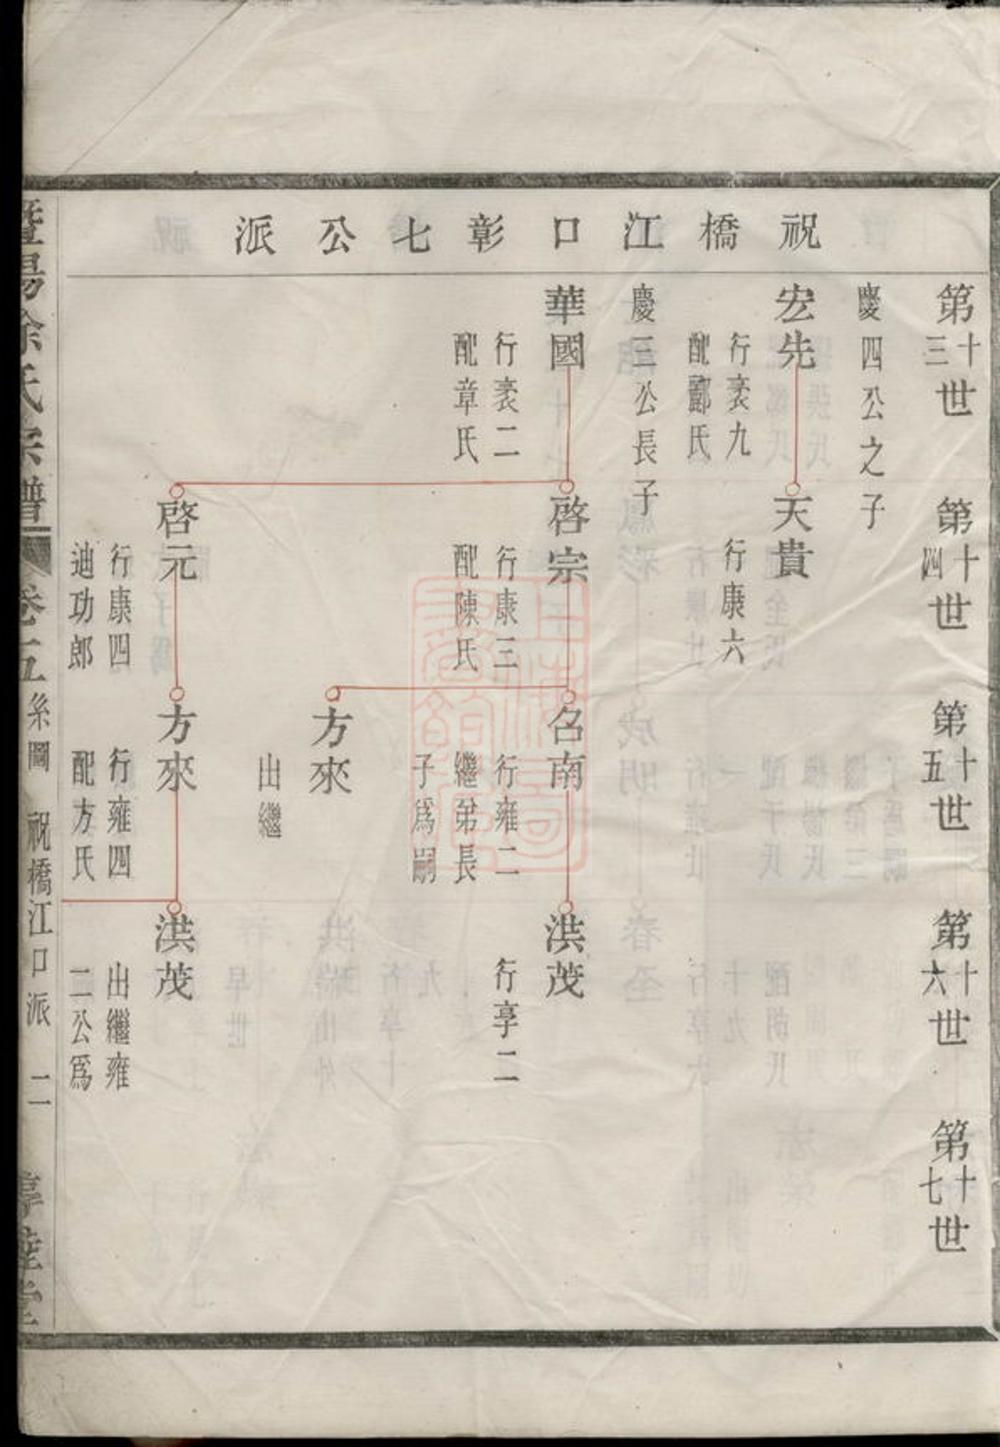 祝橋江口彰七公派
第十三世
第十四世
第十五世
第十六世
第十七世
慶四公之子
宏先
行袤九
配酈氏
天貴
行康六
慶三公長子
華國
行袤二
配章氏
啓宗
行康三
配陳氏
名南
行雍二
繼弟長
子爲嗣
洪茂
行享二
方來
出繼
啓元
行康四
迪功郎
方來
行雍四
配方氏
洪茂
出繼雍
二公爲
暨陽徐氏宗譜
卷五 系圖 祝橋江口派 二